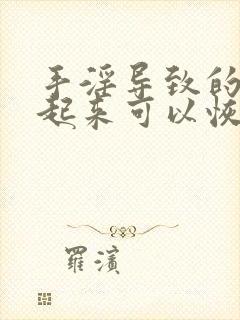 手淫导致的
起来可以恢
羅濱